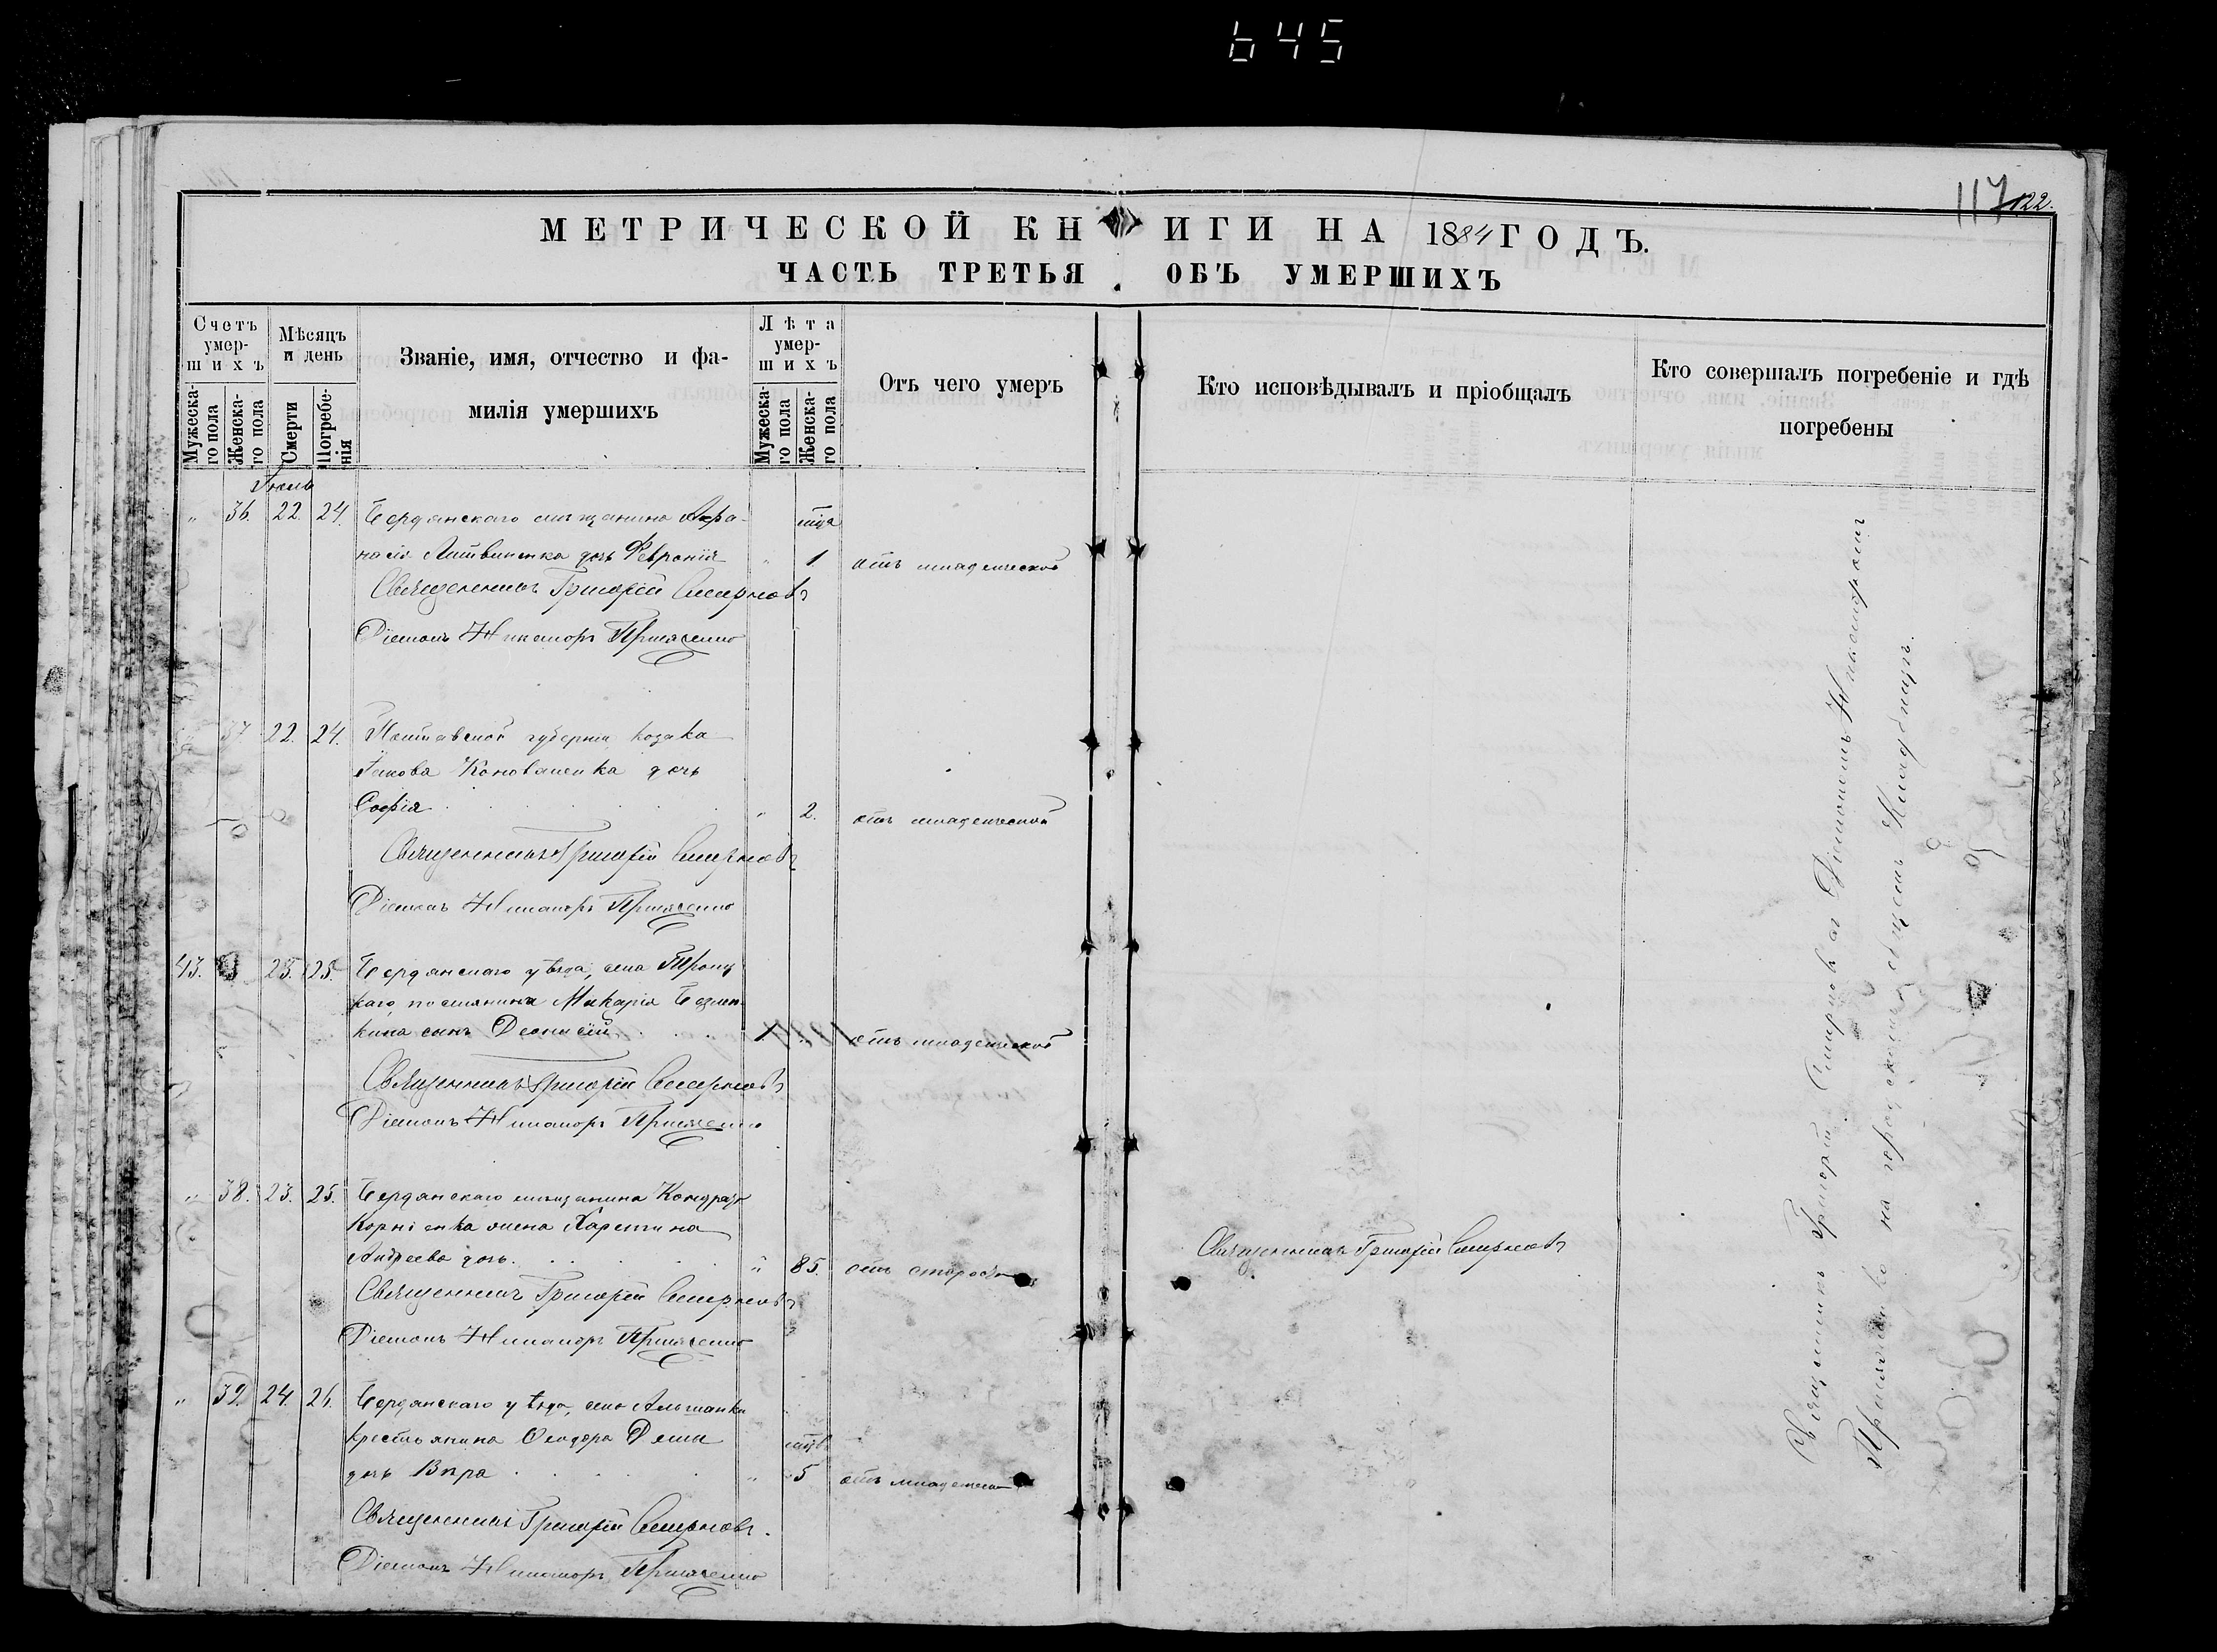 645
117 122.
МЕТРИЧЕСКОЙ КНИГИ НА 1884 ГОДЪ.
ЧАСТЬ ТРЕТЬЯ ОБЪ УМЕРШИХЪ
Счетъ умер-шихъ
Мужеска-го пола
Женска-го пола
Мѣсяцъ и день
Смерти
Погребе-нія
Званіе, имя, отчество и фа-
милія умершихъ
Лѣта умер-шихъ
Мужеска-го пола
Женска-го пола
Отъ чего умеръ
Кто исповѣдывалъ и пріобщалъ
Кто совершалъ погребеніе и гдѣ
погребены
„ 36. 22. 24. Бердянскаго мѣщанина Афа-
насія Литвиненка дочь Феvронія „ 1 отъ младенческой
Священникъ Григорій Смирновъ
Діаконъ Никаноръ
37. 22. 24. Полтавской губерніи козака
Іакова Коноваленка дочь
Софія „ 2. отъ младенческой
Священникъ Григорій Смирновъ
Діаконъ Никаноръ
43. 23. 25. Бердянскаго уѣзда, села Троиц
каго, поселянина Макарія
сынъ 1 отъ младенческой
Священникъ Григорій Смирновъ
Діаконъ Никаноръ
„ 38. 23. 25. Бердянскаго мѣщанина Кондрата
Корніенка жена Харитина
Андреева дочь „ 85. отъ старости Священникъ Григорій Смирновъ
Священникъ Григорій Смирновъ
Діаконъ Никаноръ
„ 39. 24. 26. Бердянскаго уѣзда, села
крестьянина Ѳеодора
дочь Вѣра „ 5 отъ младенческой
Священникъ Григорій Смирновъ.
Діаконъ Никаноръ
Священникъ Григорій Смирновъ съ Діакономъ Никаноромъ
на городскомъ общемъ кладбищѣ.